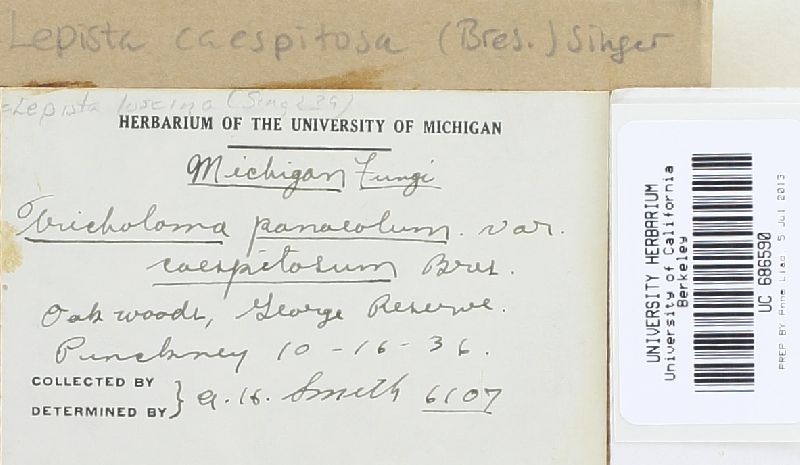 Lepista caespitosa (Bres.) Singer
=Lepista luscina (Sing 239)
HERBARIUM OF THE UNIVERSITY OF MICHIGAN
Michigan Fungi
Tricholoma panaeolum. var.
caespitosum Bres.
Oak woods, George Reserve.
Pinckney 10-16-36.
COLLECTED BY
DETERMINED BY } A. H. Smith 6107
UNIVERSITY HERBARIUM
University of California
Berkeley
UC 686590
PREP BY Anna Liao 5 Jul 2013